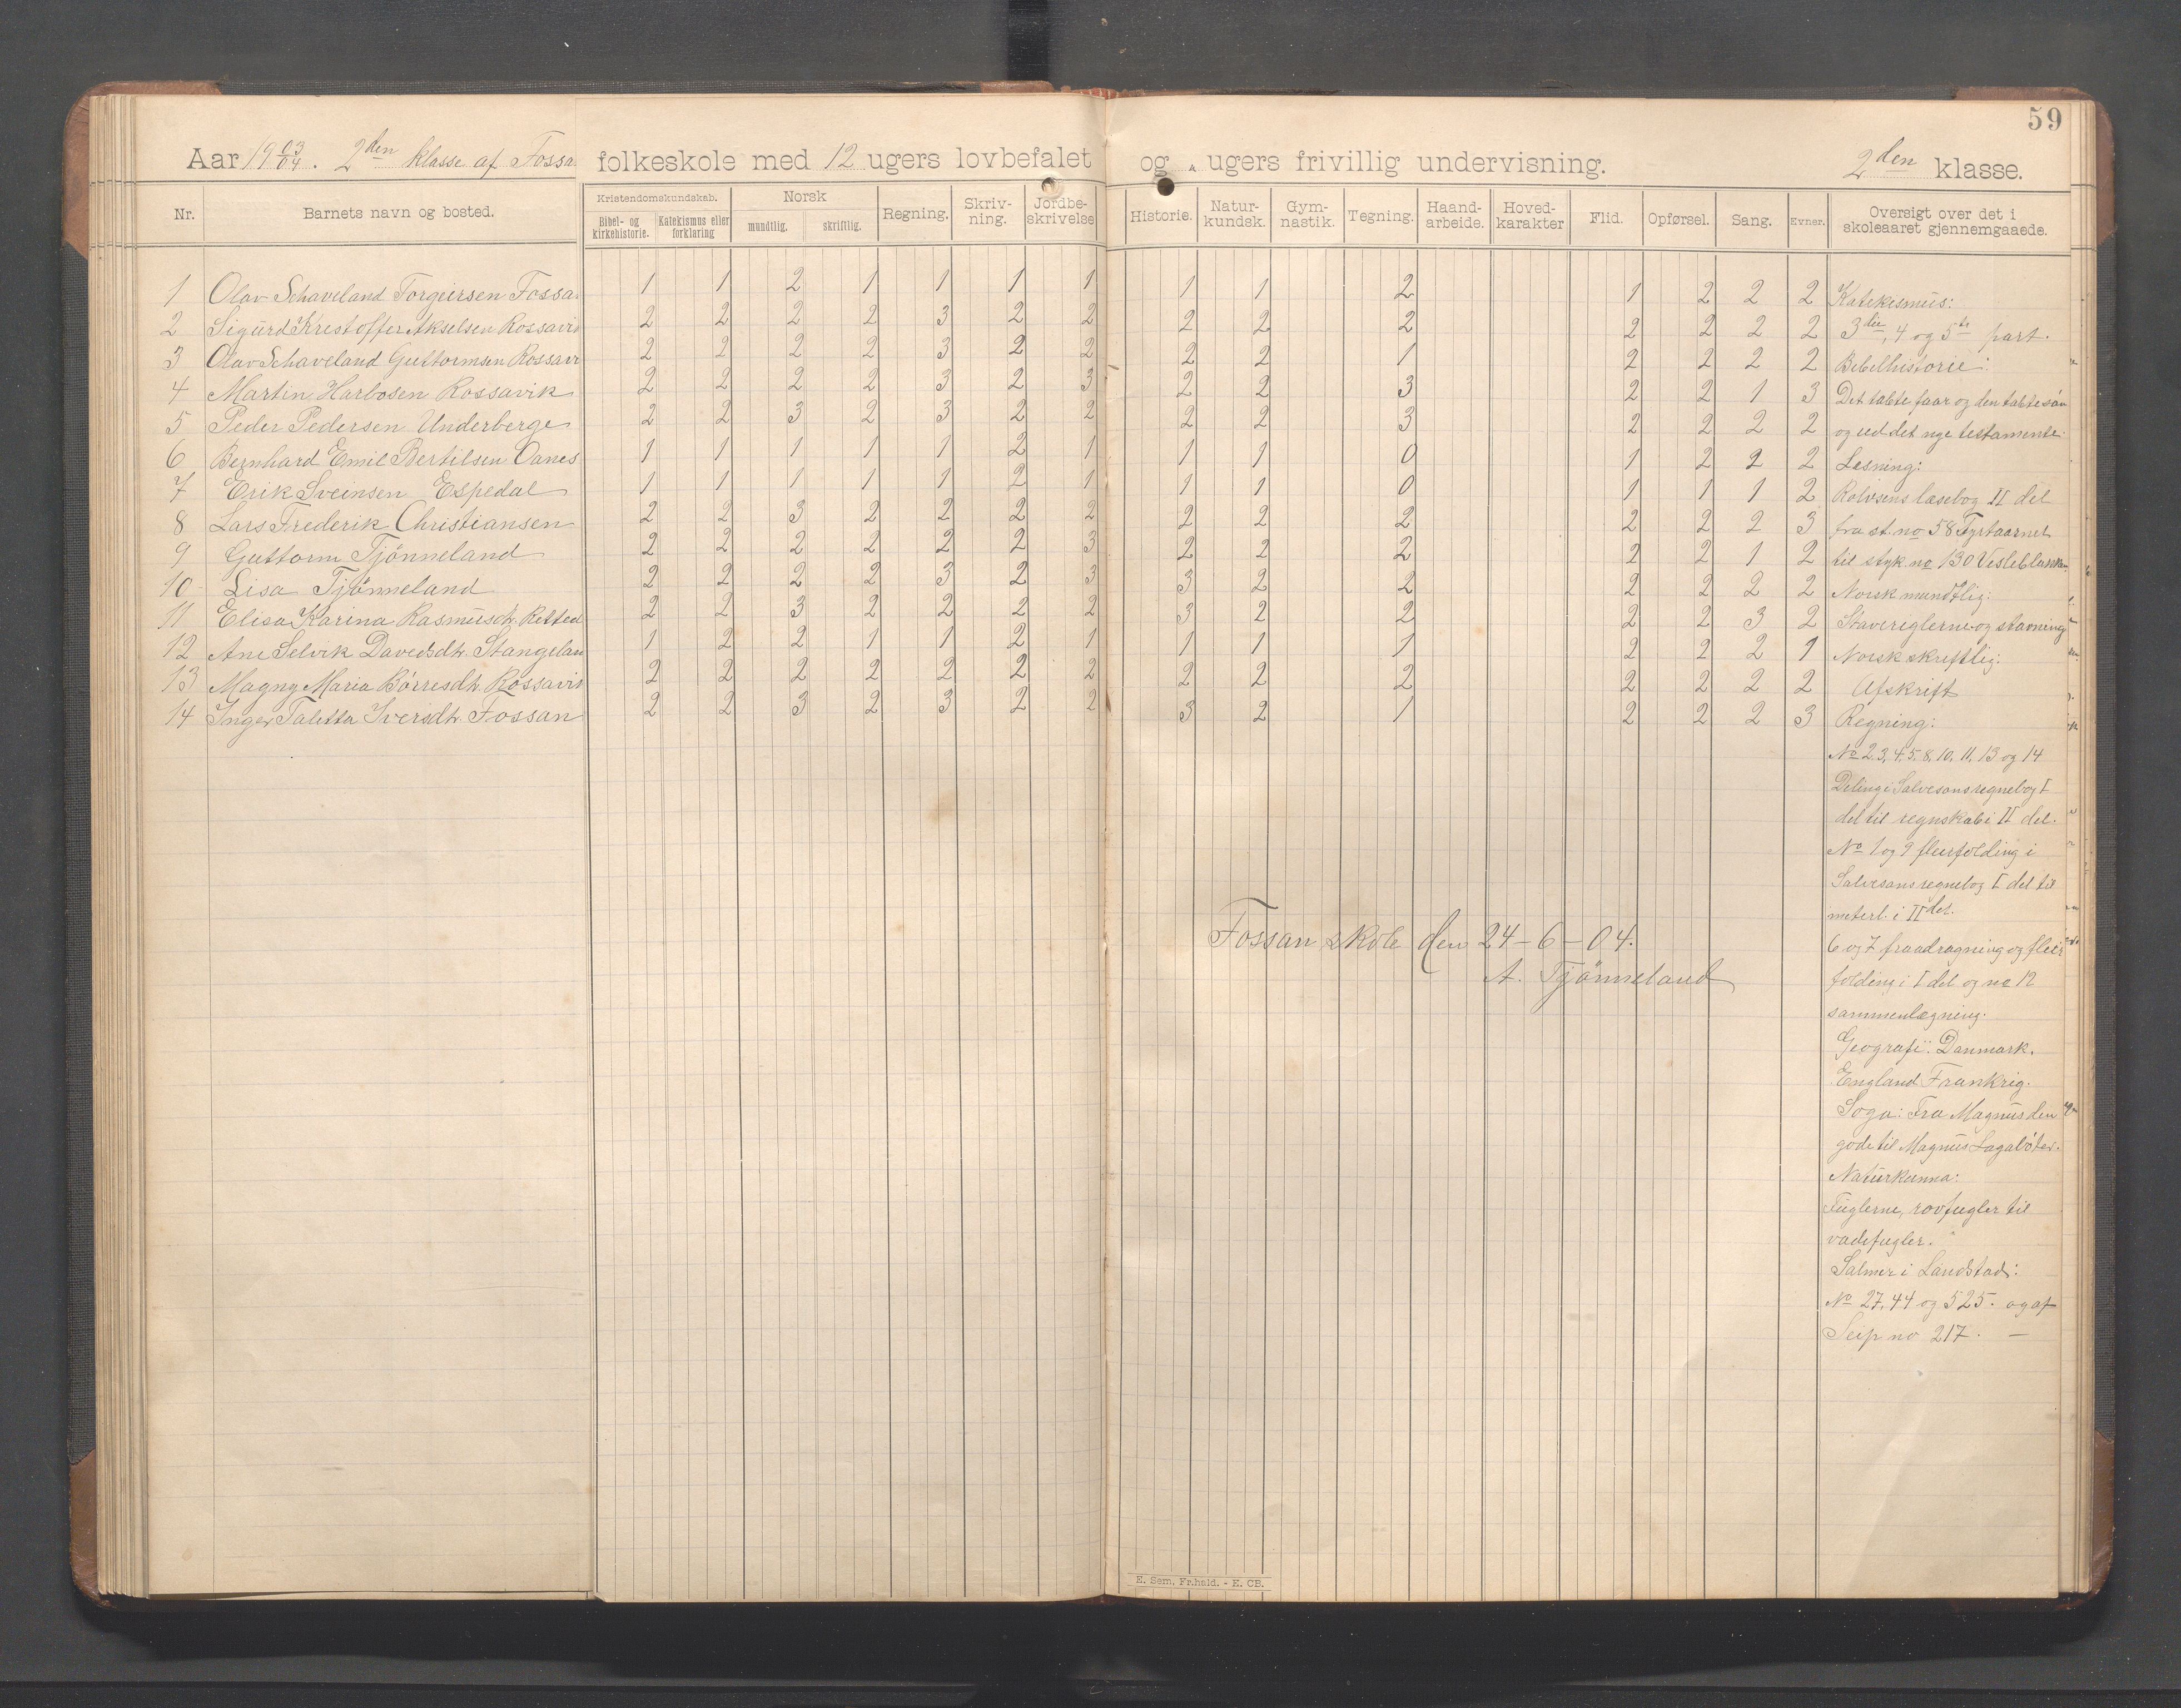 59
Aar 1903/04. 2den klasse af Fossa folkeskole med 12 ugers lovbefalet og " ugers frivillig undervisning. 2den klasse.
Nr. Barnets navn og bosted. Kristendomskundskab. Bibel- og kirkehistorie. Katekismus eller forklaring Norsk mundtlig. skriftlig. Regning. Skriv-ning. Jordbe-skrivelse Historie. Natur-kundsk. Gym-nastik. Tegning. Haand-arbeide. Hoved-karakter Flid. Opførsel. Sang. Evner. Oversigt over det i skoleaaret gjennemgaaede.
1 Olav Schaveland Torgeirsen Fossa 1 1 2 1 1 1 1 1 1 2 1 2 2 2 Katekismus:
2 Sigurd Krestoffer Akselsen Rossavi 2 2 2 2 3 2 2 2 2 2 2 2 2 2 3die, 4 og 5te part.
3 Olav Schaveland Guttormsen Rossavi 2 2 2 2 3 2 2 2 2 1 2 2 2 2 Bibelhistorie:
4 Martin Harbosen Rossavik 2 2 2 2 3 2 3 2 2 3 2 2 1 3 Det tabte faar og den tabte søn
5 Peder Pedersen Underberge 2 2 3 2 3 2 2 2 2 3 2 2 2 2 og ud det nye testamente.
6 Bernhard Emil Bertilsen Oanes 1 1 1 1 1 2 1 1 1 0 1 2 2 2 Lesning:
7 Erik Sveinsen Espedal 1 1 1 1 1 2 1 1 1 0 1 1 1 2 Rolvsens læsebog II del
8 Lars Frederik Christiansen 2 2 3 2 2 2 2 2 2 2 2 2 2 3 fra st. no 58 Fyrtaarnet
9 Guttorm Tjønneland 2 2 2 2 2 2 3 2 2 2 2 2 1 2 til styk no 130
10 Lisa Tjønneland 2 2 2 2 3 2 3 3 2 2 2 2 2 2 Norsk mundtlig:
11 Elisa Karina Rasmusdt. Retted 2 2 3 2 2 2 2 3 2 2 2 2 3 2 Stavereglerne og stavning
12 Ane Selvik Davedsdt. Stangelan 1 2 2 1 1 2 1 1 1 1 2 2 2 1 Norsk skriftlig:
13 Magny Maria Børresdt. Rossavi 2 2 2 2 2 2 2 2 2 2 2 2 2 2 Afskrift
14 Inger Taletta Iversdt. Fossan 2 2 3 2 3 2 2 3 2 1 2 2 2 3 Regning:
No 2, 3, 4, 5, 8, 10, 11, 13 og 14
Deling i Salvesons regnebog I
del til regnskab i II del.
No 1 og 9 fleirfolding i
Salvesons regnebog I del til
meterl. i II del.
6 og 7 fradragning og fleir
folding i I del og no 12
sammenlægning.
Geografi: Danmark.
England Frankrig.
Soga: Fra Magnus den
gode til Magnus Lagabøter.
Naturkunna:
Fuglerne, rovfugler til
vadefugler.
Salmer i Landstad:
No 27, 44 og 525. og af
Seip no 217. —
Fossan skole den 24-6-04.
A. Tjønneland
E. Sem, Fr.hald. - E. CB.